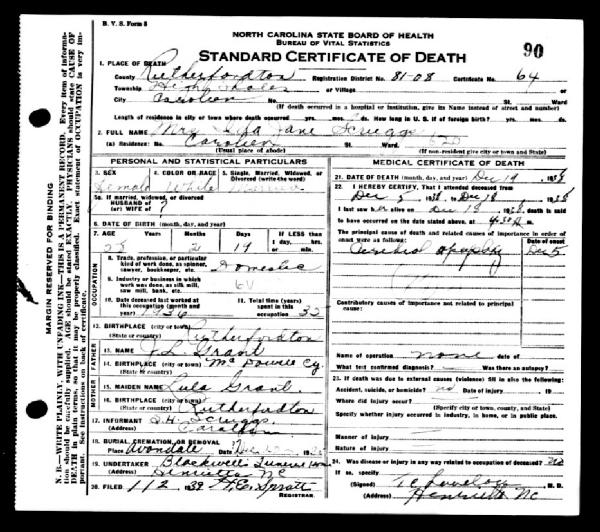 B. V. S. Form 8
NORTH CAROLINA STATE BOARD OF HEALTH
BUREAU OF VITAL STATISTICS
STANDARD CERTIFICATE OF DEATH
90
1. PLACE OF DEATH
County Rutherfordton Registration District No. 81-08 Certificate No. 64
Township High Shoals or Village
City Caroleen St. Ward
(If death occurred in a hospital or institution, give its Name instead of street and number)
Length of residence in city or town where death occurred yrs. mos. ds. How long in U. S. if of foreign birth? yrs. mos. ds.
2. FULL NAME Mrs. Jane Scruggs
(a) Residence: No. Caroleen St. Ward.
(Usual place of abode) (If non-resident give city or town and State)
PERSONAL AND STATISTICAL PARTICULARS
3. SEX 4. COLOR OR RACE 5. Single, Married, Widowed, or Divorced (write the word)
Female White
5a. If married, widowed, or divorced
HUSBAND of
(or) WIFE of ?
6. DATE OF BIRTH (month, day, and year)
7. AGE Years Months Days If LESS than 1 day, hrs. or min.
2 19
OCCUPATION
8. Trade, profession, or particular kind of work done, as spinner, sawyer, bookkeeper, etc. Domestic
9. Industry or business in which work was done, as silk mill, saw mill, bank, etc.
10. Date deceased last worked at this occupation (month and year) 1936
11. Total years (time) spent in this occupation 32
12. BIRTHPLACE (city or town) Rutherfordton
(State or country)
FATHER
13. NAME J. L. Grant
14. BIRTHPLACE (city or town) McDowell Cy.
(State or country)
MOTHER
15. MAIDEN NAME Lula Grant
16. BIRTHPLACE (city or town) Rutherfordton
(State or country)
17. INFORMANT Scruggs
(Address) Caroleen
18. BURIAL, CREMATION, OR REMOVAL
Place Avondale Date 19
19. UNDERTAKER Blackwells Funeral Home
(Address) Henrietta NC
20. FILED 1 12 1939 Spratt
REGISTRAR.
MEDICAL CERTIFICATE OF DEATH
21. DATE OF DEATH (month, day, and year) Dec 19 1938
22. I HEREBY CERTIFY, That I attended deceased from
Dec 5 1938, to Dec 18 1938
I last saw h alive on Dec 18 1938, death is said
to have occurred on the date stated above, at 4:30 A m.
The principal cause of death and related causes of importance in order of onset were as follows:
Date of onset
Cerebral apoplexy Dec 5
Contributory causes of importance not related to principal cause:
Name of operation none date of
What test confirmed diagnosis? Was there an autopsy?
23. If death was due to external causes (violence) fill in also the following:
Accident, suicide, or homicide? no Date of injury 19
Where did injury occur?
(Specify city or town, county, and State)
Specify whether injury occurred in industry, in home, or in public place.
Manner of injury
Nature of injury
24. Was disease or injury in any way related to occupation of deceased? no
If so, specify
(Signed) T C Lovelace M. D.
(Address) Henrietta NC
MARGIN RESERVED FOR BINDING
N. B.—WRITE PLAINLY, WITH UNFADING INK—THIS IS A PERMANENT RECORD. Every item of information should be carefully supplied. AGE should be stated EXACTLY. PHYSICIANS should state CAUSE OF DEATH in plain terms, so that it may be properly classified. Exact statement of OCCUPATION is very important. See instructions on back of certificate.